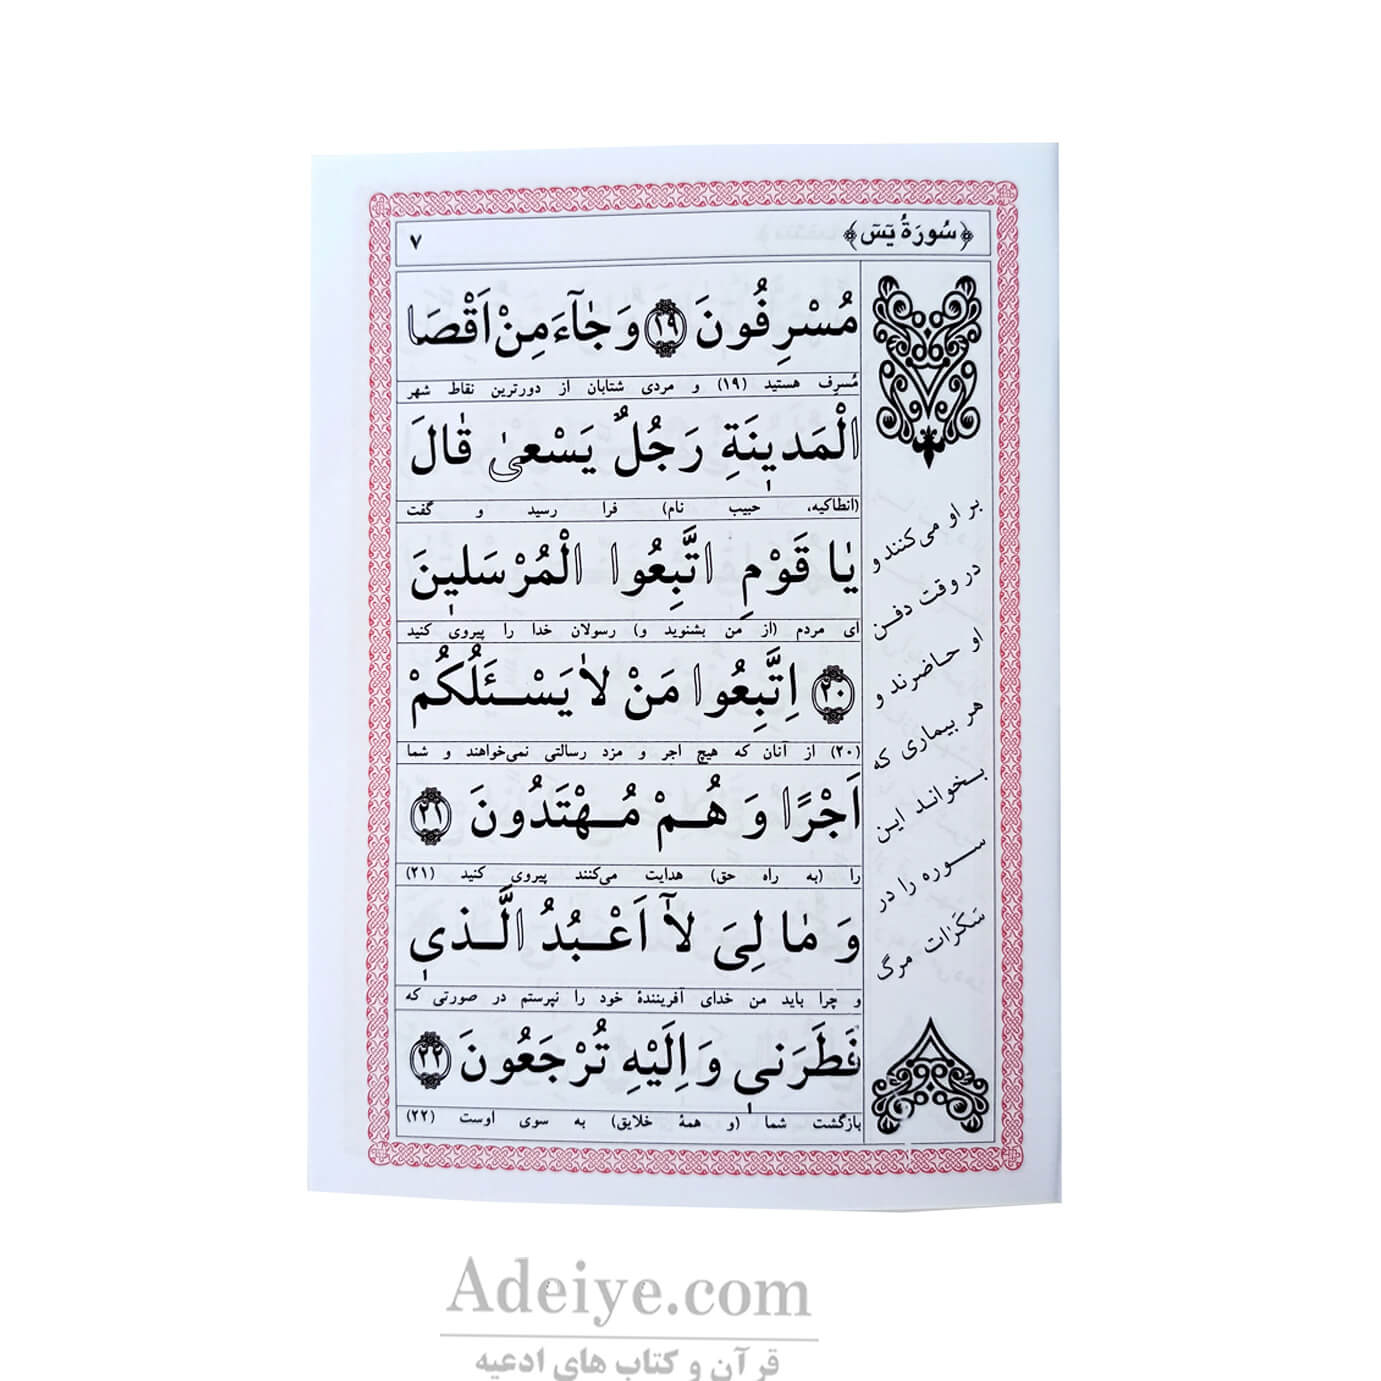 ﴿سُورَةُ يٓسٓ﴾ ۷
مُسْرِفُونَ ﴿۱۹﴾ وَ جٰٓاءَ مِنْ اَقْصَا
مُسرِف هستید (۱۹) و مردی شتابان از دورترین نقاط شهر
الْمَدینَةِ رَجُلٌ یَسْعیٰ قٰالَ
(انطاکیه، حبیب نام) فرا رسید و گفت
یٰا قَوْمِ اتَّبِعُوا الْمُرْسَلینَ
ای مردم (از من بشنوید و) رسولان خدا را پیروی کنید
﴿۲۰﴾ اِتَّبِعُوا مَنْ لاٰ یَسْـئَلُكُمْ
(۲۰) از آنان که هیچ اجر و مزد رسالتی نمی‌خواهند و شما
اَجْرًا وَ هُـمْ مُـهْتَدُونَ ﴿۲۱﴾
را (به راه حق) هدایت می‌کنند پیروی کنید (۲۱)
وَ مٰا لِیَ لآٰ اَعْـبُدُ الَّـذی
و چرا باید من خدای آفرینندهٔ خود را نپرستم در صورتی که
فَطَرَنی وَ اِلَیْهِ تُرْجَعُونَ ﴿۲۲﴾
بازگشت شما (و همهٔ خلایق) به سوی اوست (۲۲)
بر او می‌کنند و
در وقت دفن
او حاضرند و
هر بیماری که
بـخوانـد ایـن
سـوره را در
سَکَرٰات مرگ
Adeiye.com
قرآن و کتاب های ادعیه